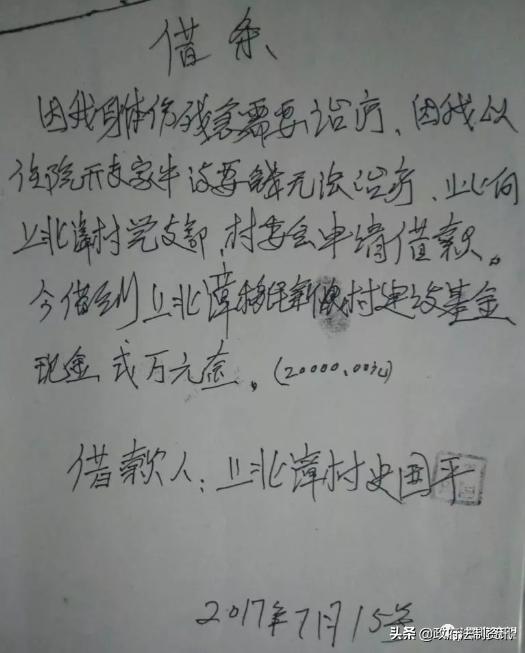 借条
因我身体伤残急需要治疗、因我以
住院开支家中没要钱无法治疗、止向
上北漳村党支部、村委会申请借款。
今借到上北漳移民新村建设基金
现金弍万元奈。(20000.00元)
借款人:上北漳村史国平
2017年7月15号
头条 @政府法制资讯